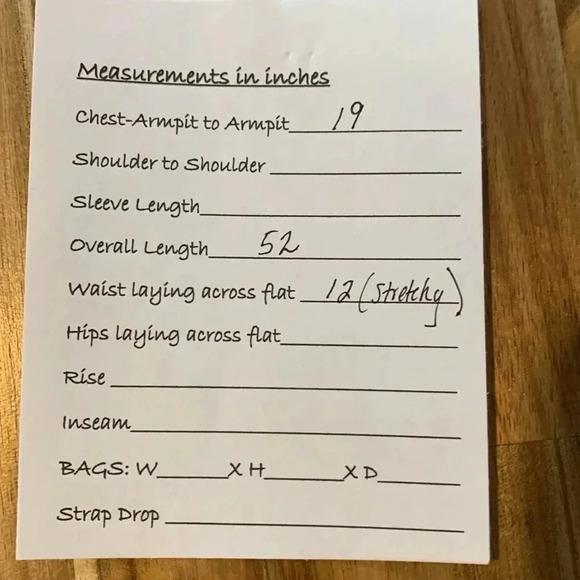 Measurements in inches
Chest-Armpit to Armpit 19
Shoulder to Shoulder
Sleeve Length
Overall Length 52
Waist laying across flat 12 (stretchy)
Hips laying across flat
Rise
Inseam
BAGS: W X H X D
Strap Drop